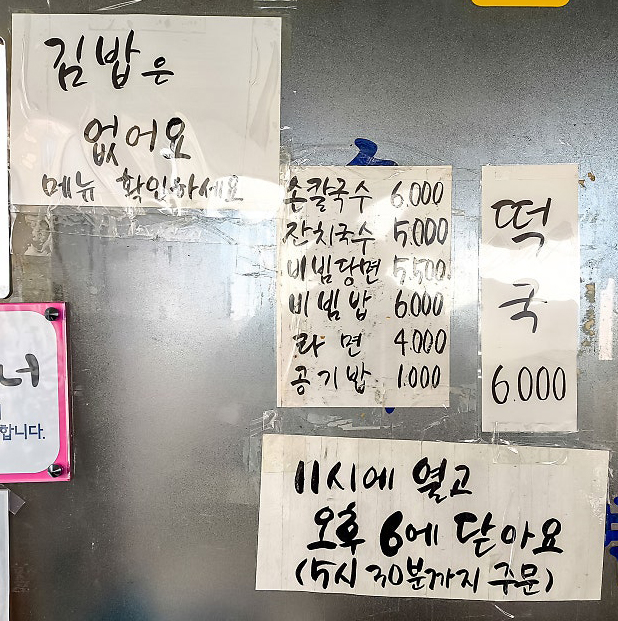 김밥은
없어요
메뉴 확인하세요
손칼국수 6.000
잔치국수 5.000
비빔당면 5.500
비빔밥 6.000
라면 4.000
공기밥 1.000
떡
국
6.000
11시에 열고
오후 6에 닫아요
(5시 30분까지 주문)
너
합니다.